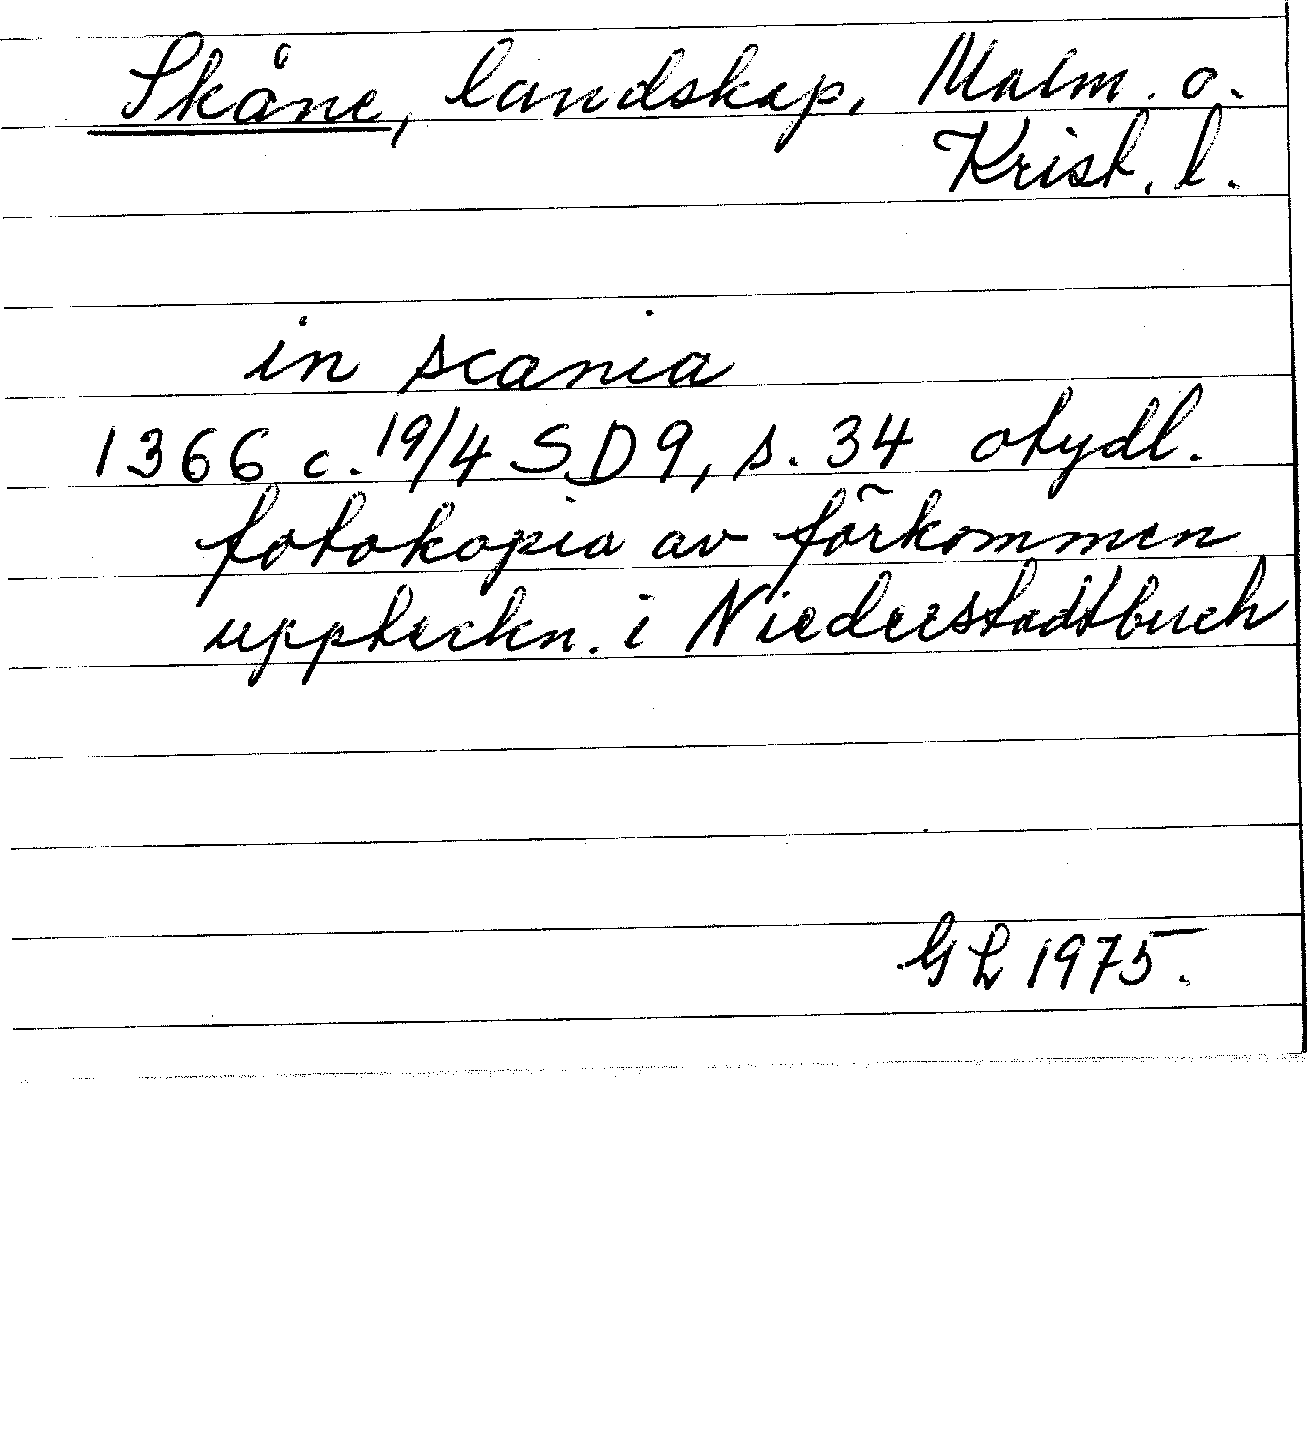 Skåne, landskap, Malm. o.
Krist. l.
in scania
1366 c. 19/4 SD9, s. 34 otydl.
fotokopia av förkommen
uppteckn. i Niederstadtbuch
GL 1975.